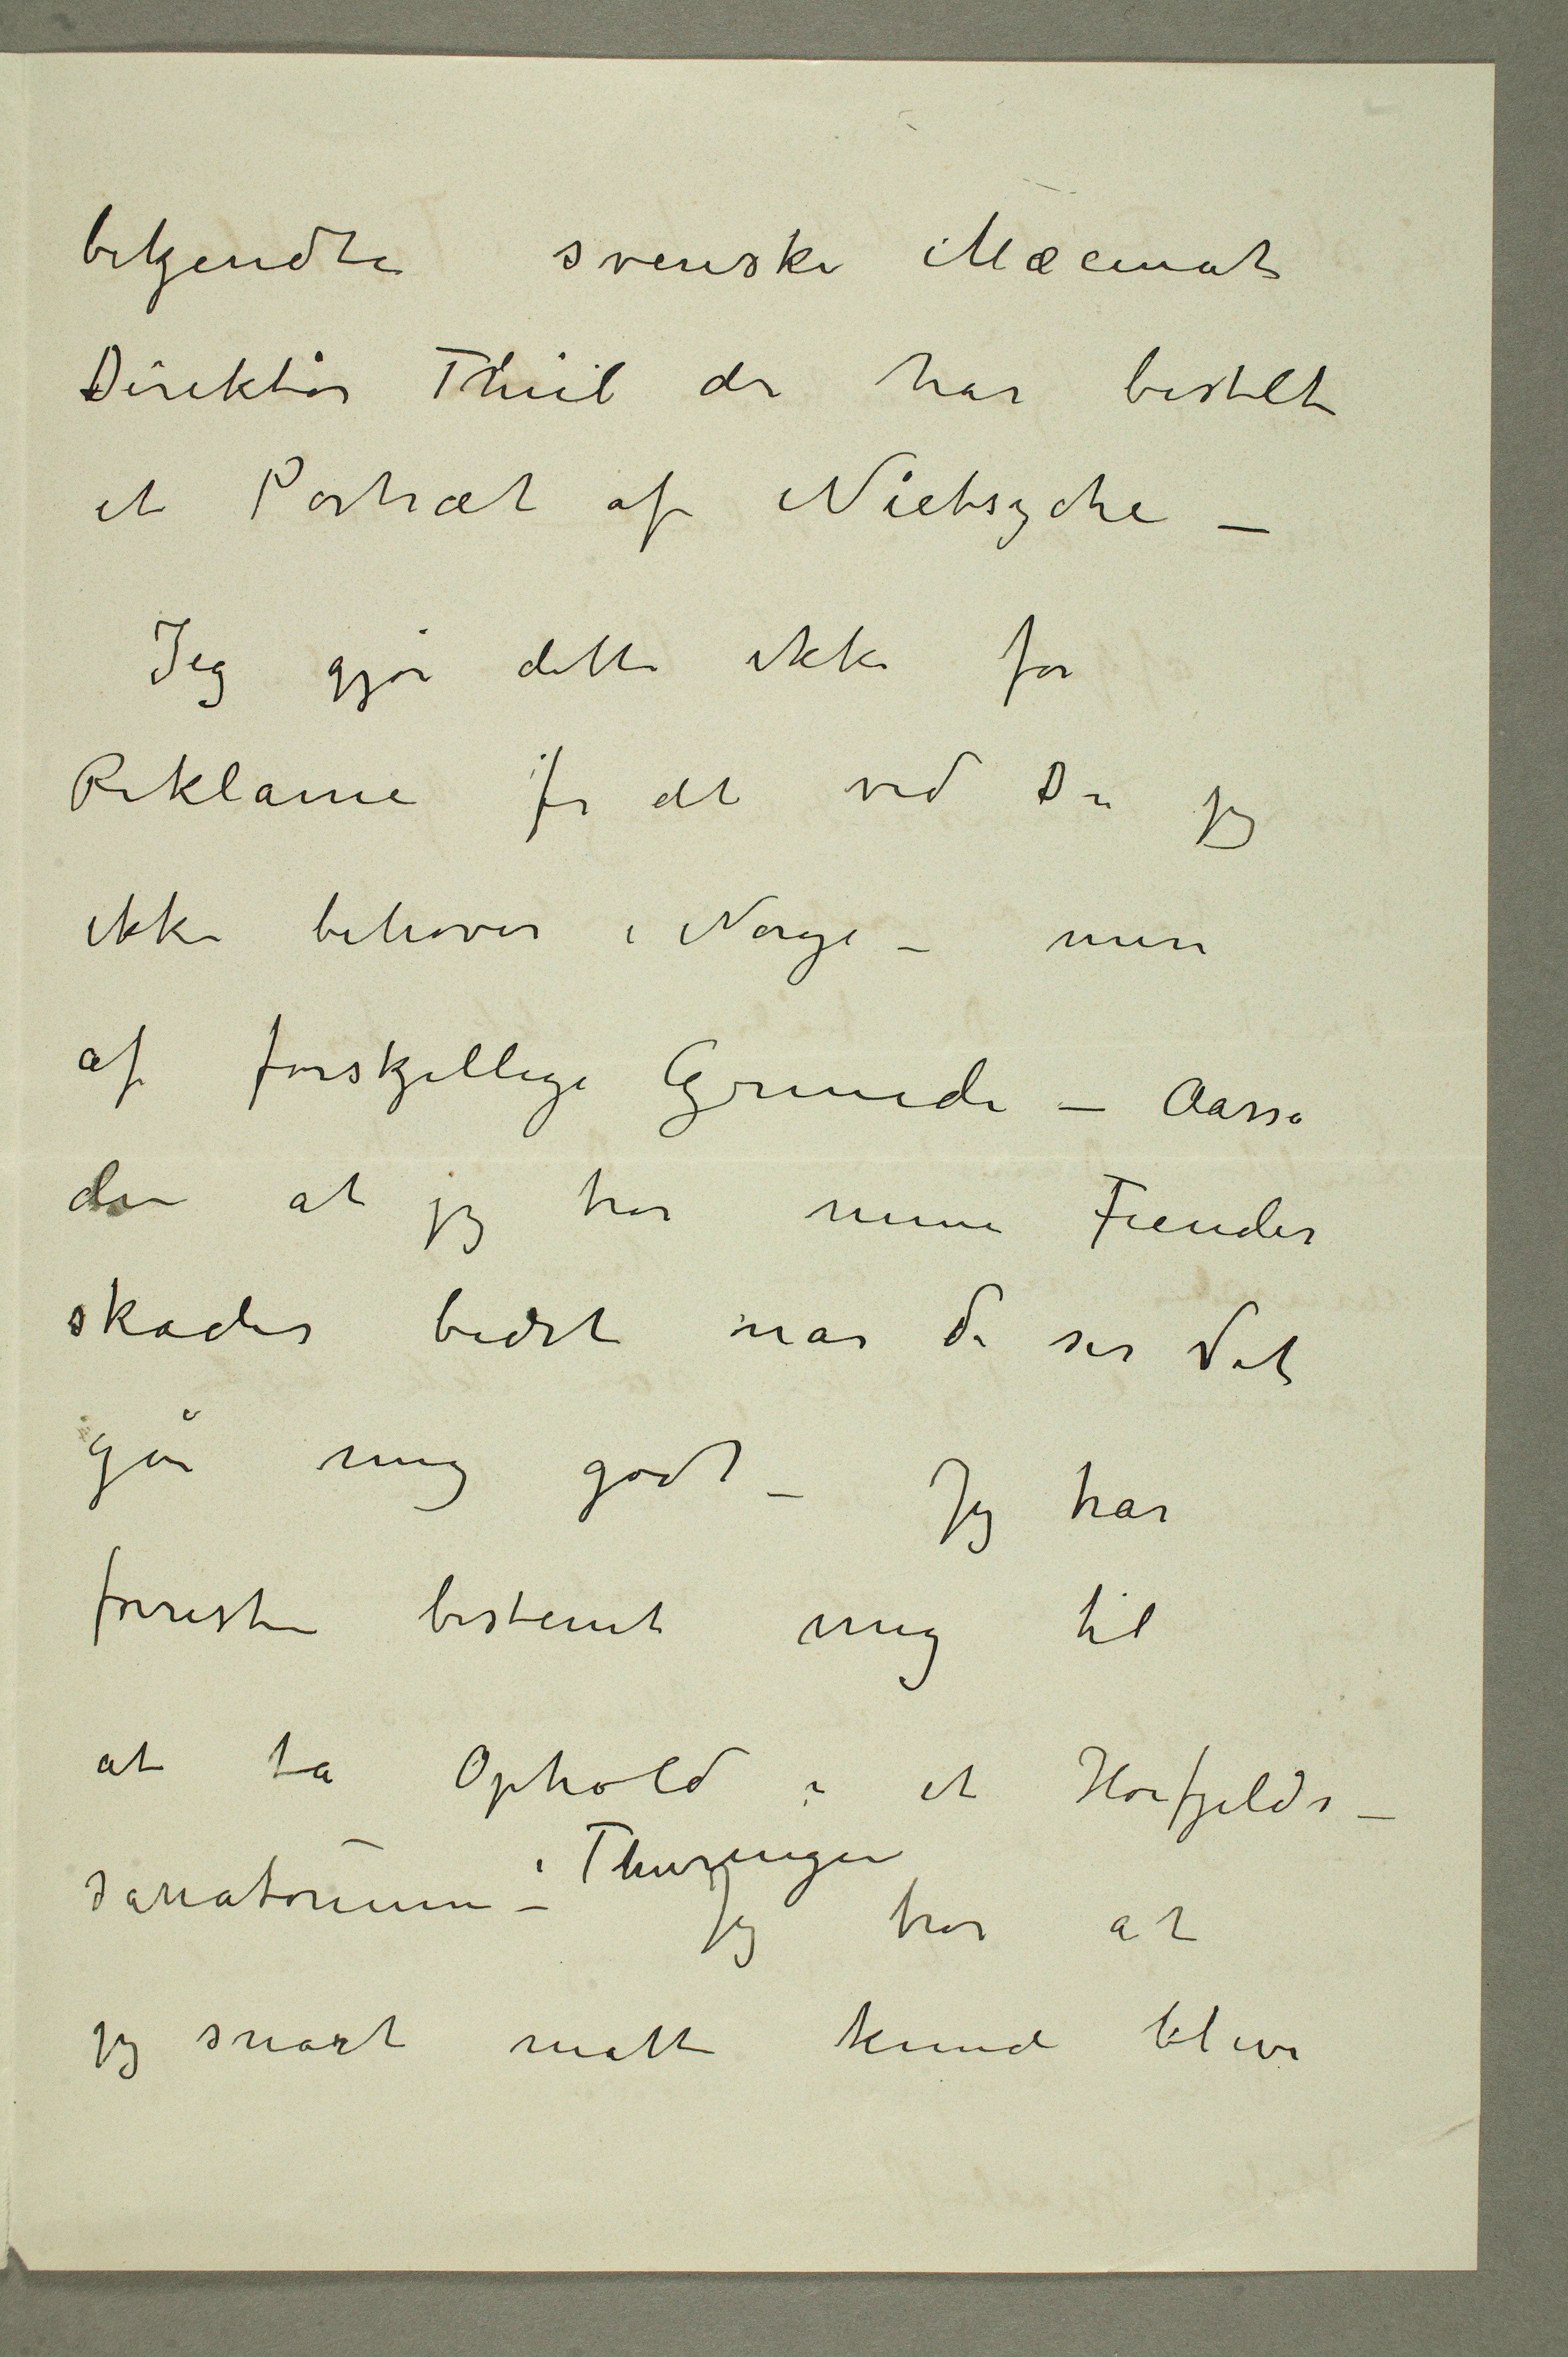 bekjendte svenske Mæcenat
Direktør Thiil der har bestilt
et Portræt af Nietsyche –
Jeg gjør dette ikke for
Reklame for det ved Du jeg
ikke behøver i Norge – men
af forskjellige Grunde – Aassa
den at jeg tror mine Fiender
skades bedst når de ser det
går mig godt – Jeg har
forresten bestemt mig til
at ta Ophold i et Høifjelds–
sanatorium – i Thuringen Jeg tror at
jeg snart måtte kunde blive